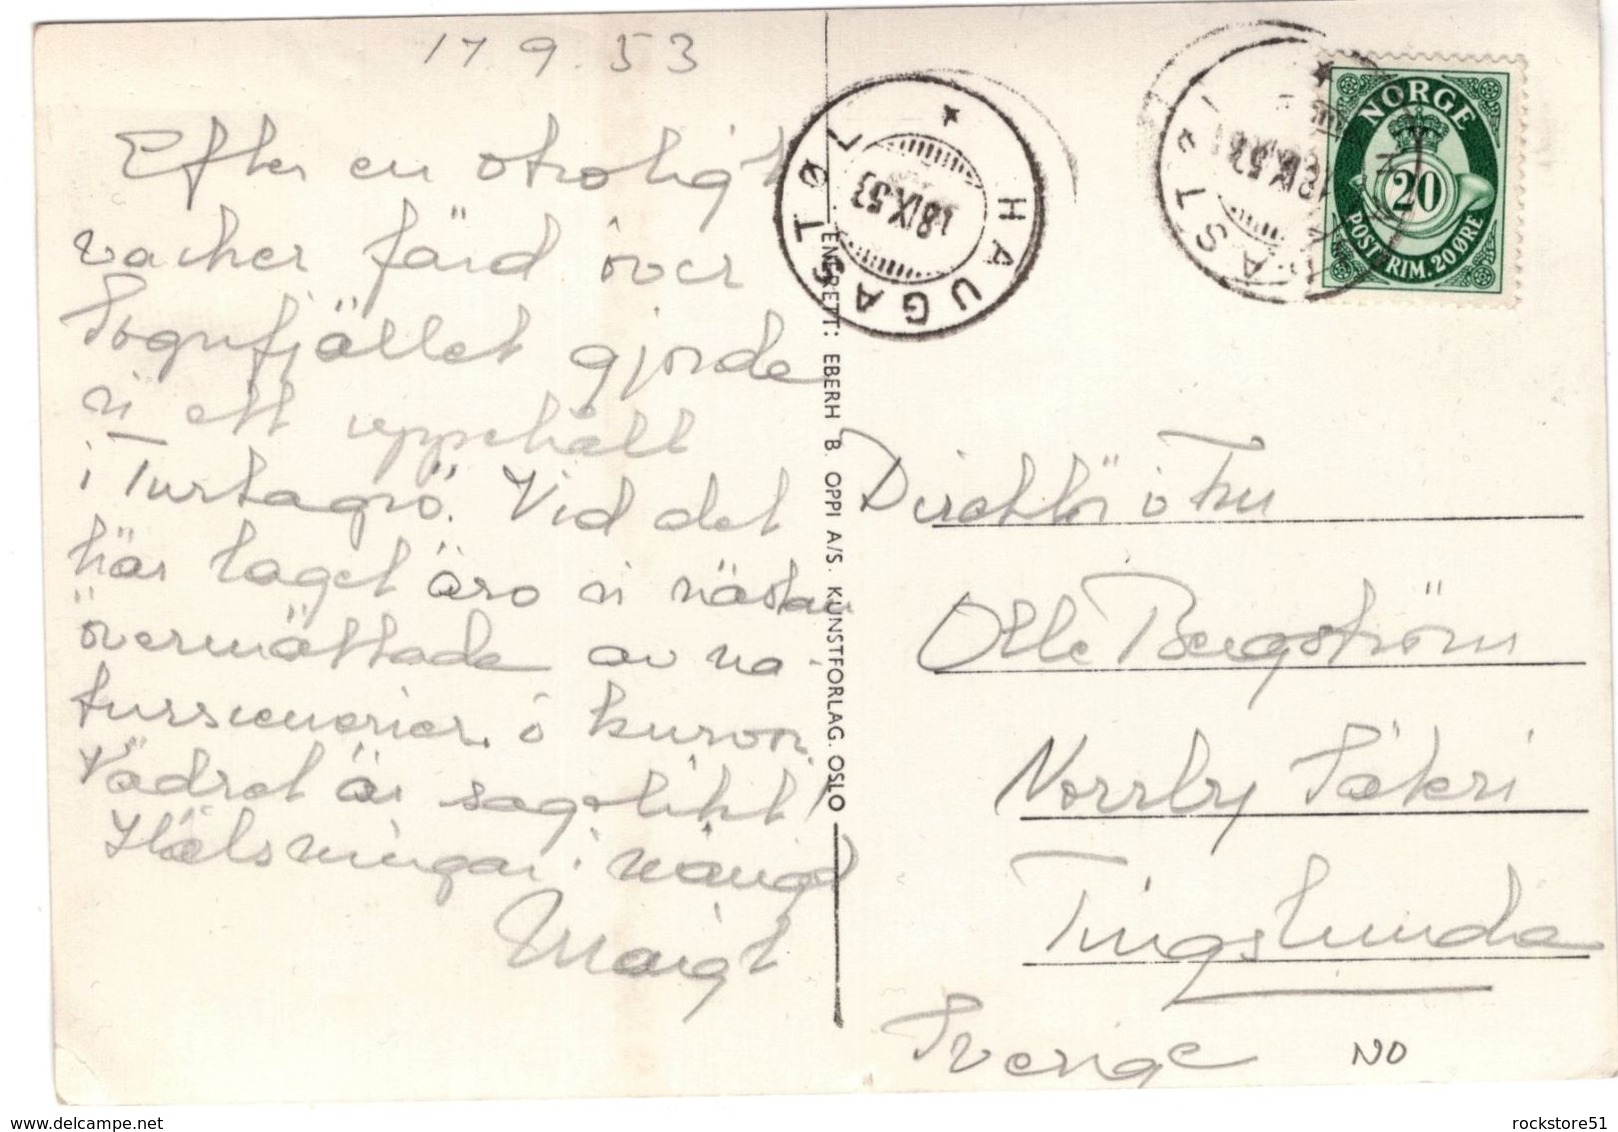 17.9.53
Efter en otroligt
vacker färd över
Sognefjället gjorde
vi ett uppehåll
i Turtagrö. Vid det
här laget äro vi nästan
övermättade av na-
turscenerier. i
Vädret är sagolikt!
Hälsningar i mängd
Margit
ENERETT: EBERH B. OPPI A/S. KUNSTFORLAG. OSLO
HAUGASTØL
18 IX.53
HAUGASTØL
18 IX.53
NORGE
20
POSTFRIM. 20 ØRE
Direktör o Fru
Olle Bergström
Norrby Säteri
Tingslunda
Sverige
NO
rockstore51